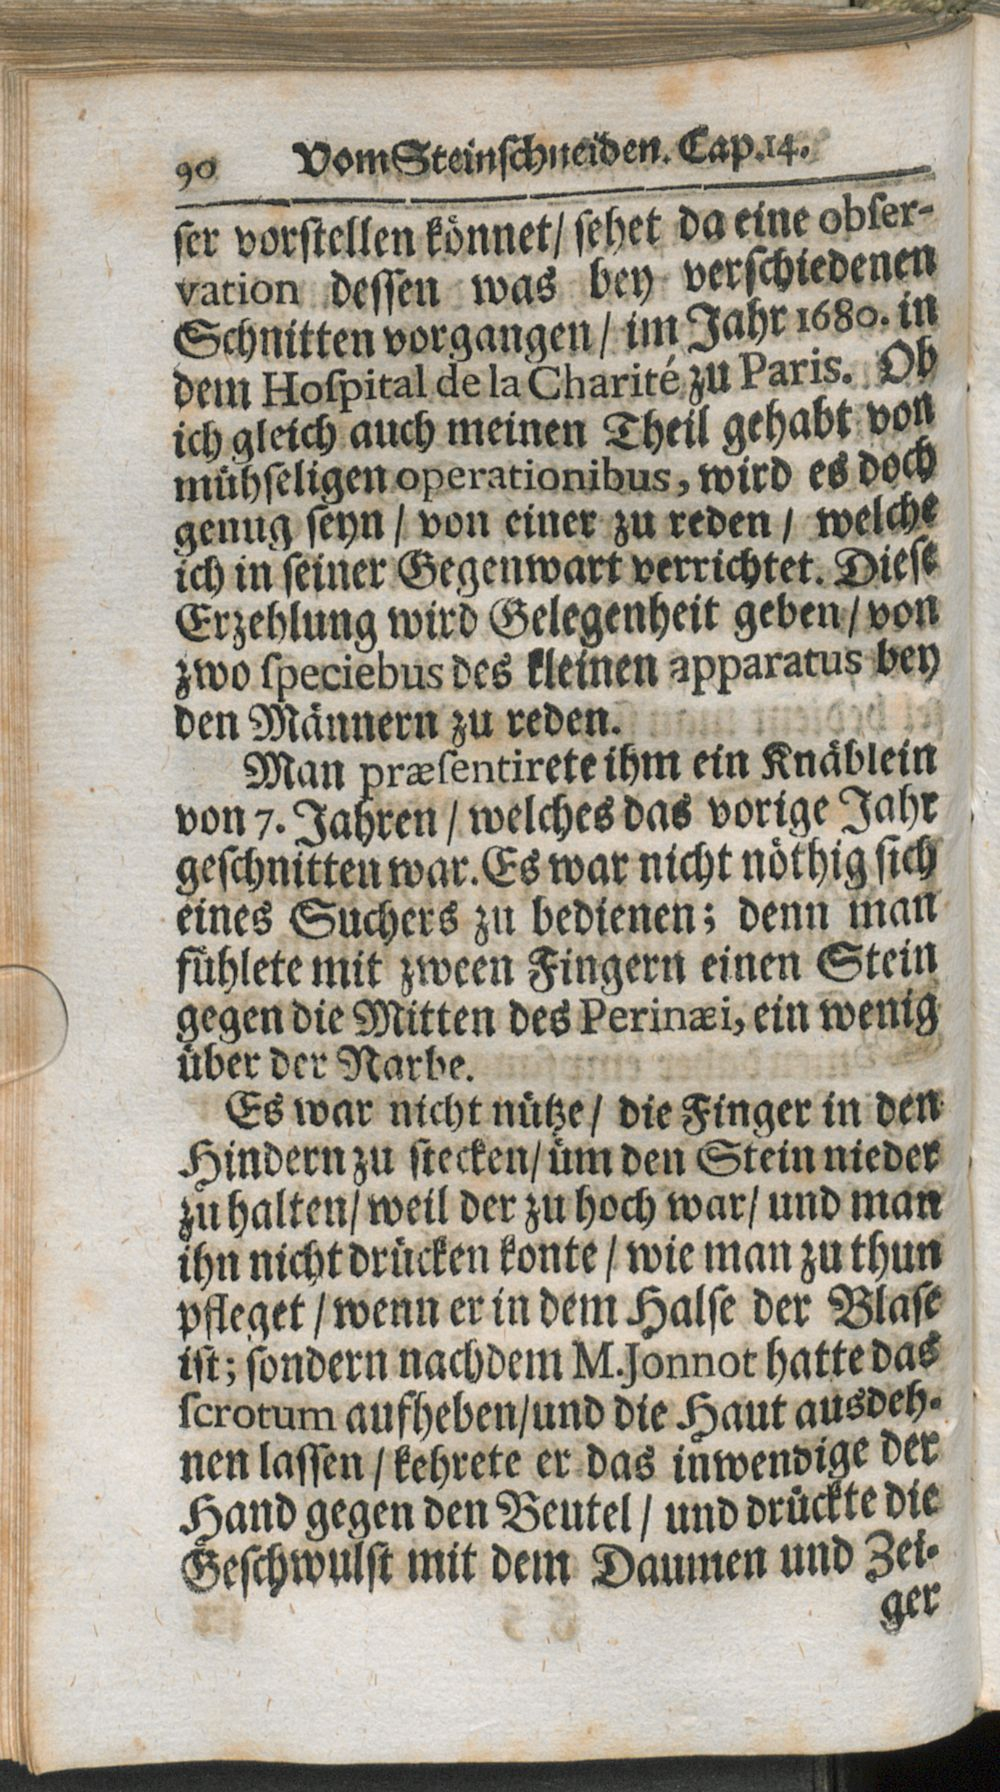 90 Vom Steinschneiden. Cap. 14.
ser vorstellen könnet/ sehet da eine obser-
vation dessen was bey verschiedenen
Schnitten vorgangen/ im Jahr 1680. in
dem Hospital de la Charité zu Paris. Ob
ich gleich auch meinen Theil gehabt von
mühseligen operationibus, wird es doch
genug seyn/ von einer zu reden/ welche
ich in seiner Gegenwart verrichtet. Diese
Erzehlung wird Gelegenheit geben/ von
zwo speciebus des kleinen apparatus bey
den Männern zu reden.
Man præsentirete ihm ein Knäblein
von 7. Jahren/ welches das vorige Jahr
geschnitten war. Es war nicht nöthig sich
eines Suchers zu bedienen; denn man
fühlete mit zween Fingern einen Stein
gegen die Mitten des Perinæi, ein wenig
über der Narbe.
Es war nicht nütze/ die Finger in den
Hindern zu stecken/ üm den Stein nieder
zu halten/ weil der zu hoch war/ und man
ihn nicht drücken konte/ wie man zu thun
pfleget/ wenn er in dem Halse der Blase
ist; sondern nachdem M. Jonnot hatte das
scrotum aufheben/ und die Haut ausdeh-
nen lassen/ kehrete er das inwendige der
Hand gegen den Beutel/ und drückte die
Geschwulst mit dem Daumen und Zei-
ger